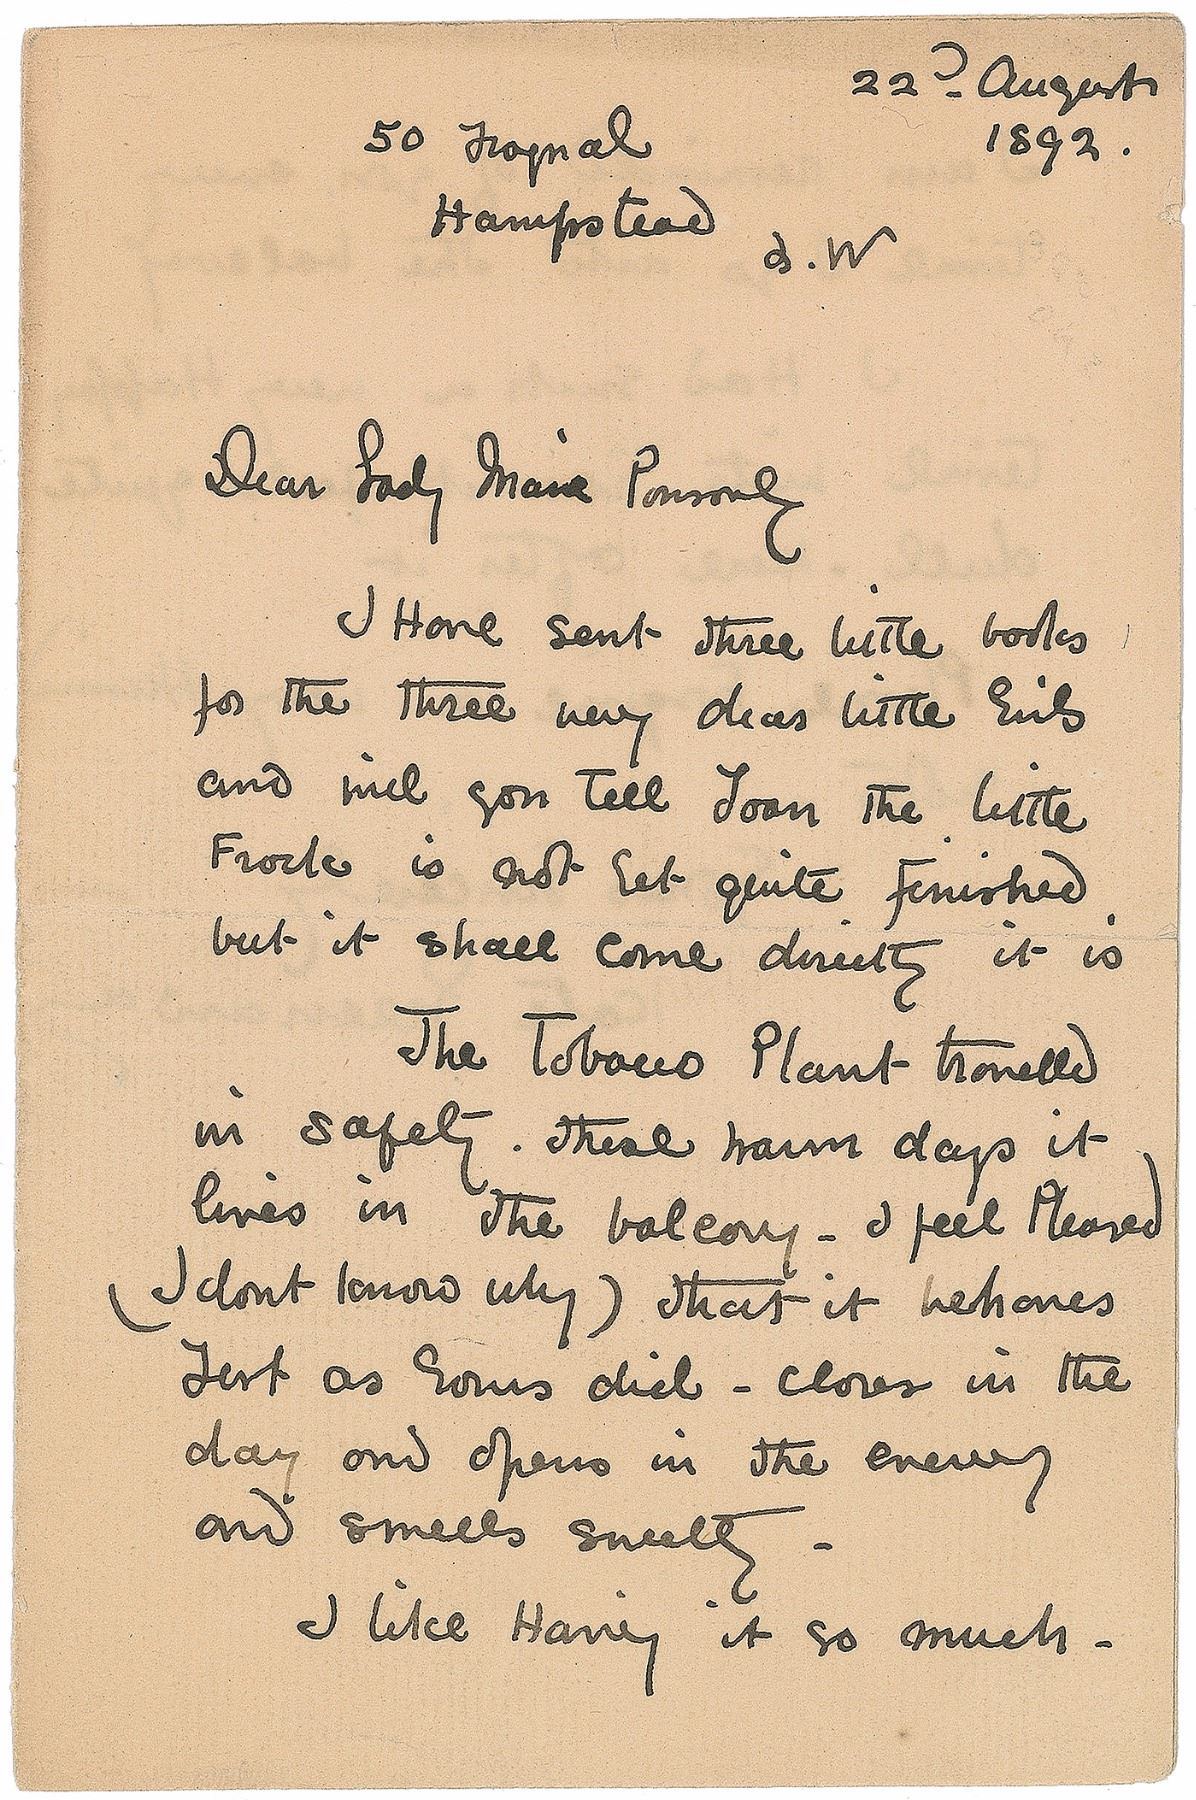 22nd August
1892.
50 Frognal
Hampstead
N.W
Dear Lady Maria Ponsonby
I Have sent three little books
for the three very dear little Girls
and will you tell Joan the little
Frock is not Yet quite finished
but it shall come directly it is
The Tobacco Plant travelled
in safety. these warm days it
lives in the balcony - I feel Pleased
(I dont know why) that it behaves
Just as Yours did - closes in the
day and opens in the evening
and smells sweetly -
I like Having it so much -